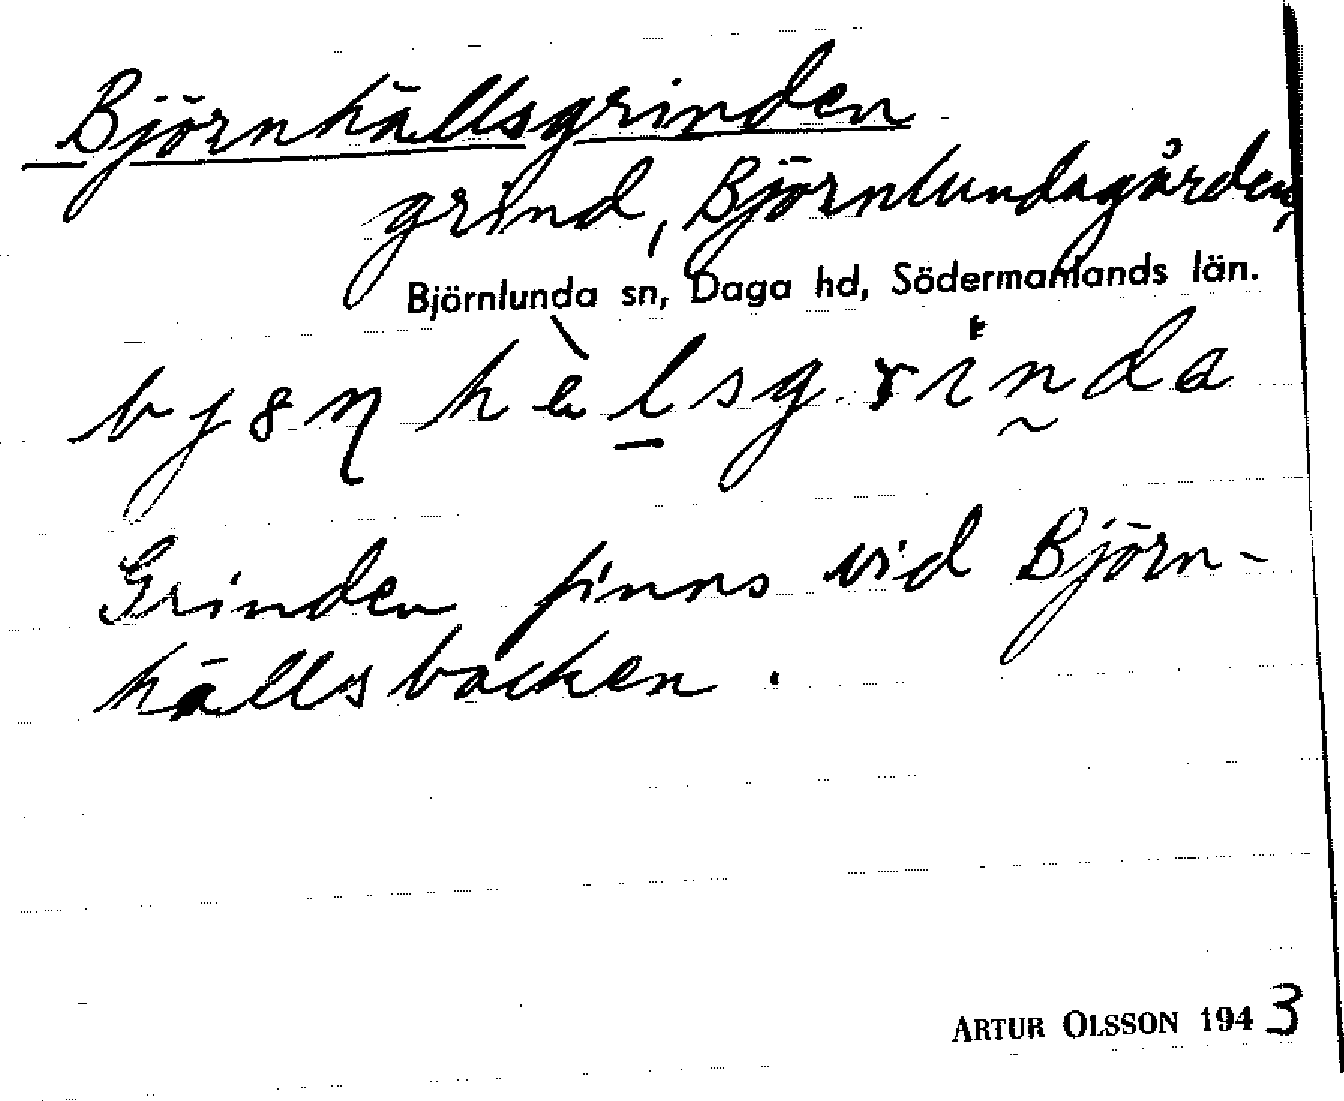 Björnhällsgrinden
grind, Björnlundagården,
Björnlunda sn, Daga hd, Södermanlands län.
bjöɳhæ̀lsgrinda
Grinden finns vid Björn-
hällsbacken.
ARTUR OLSSON 1943